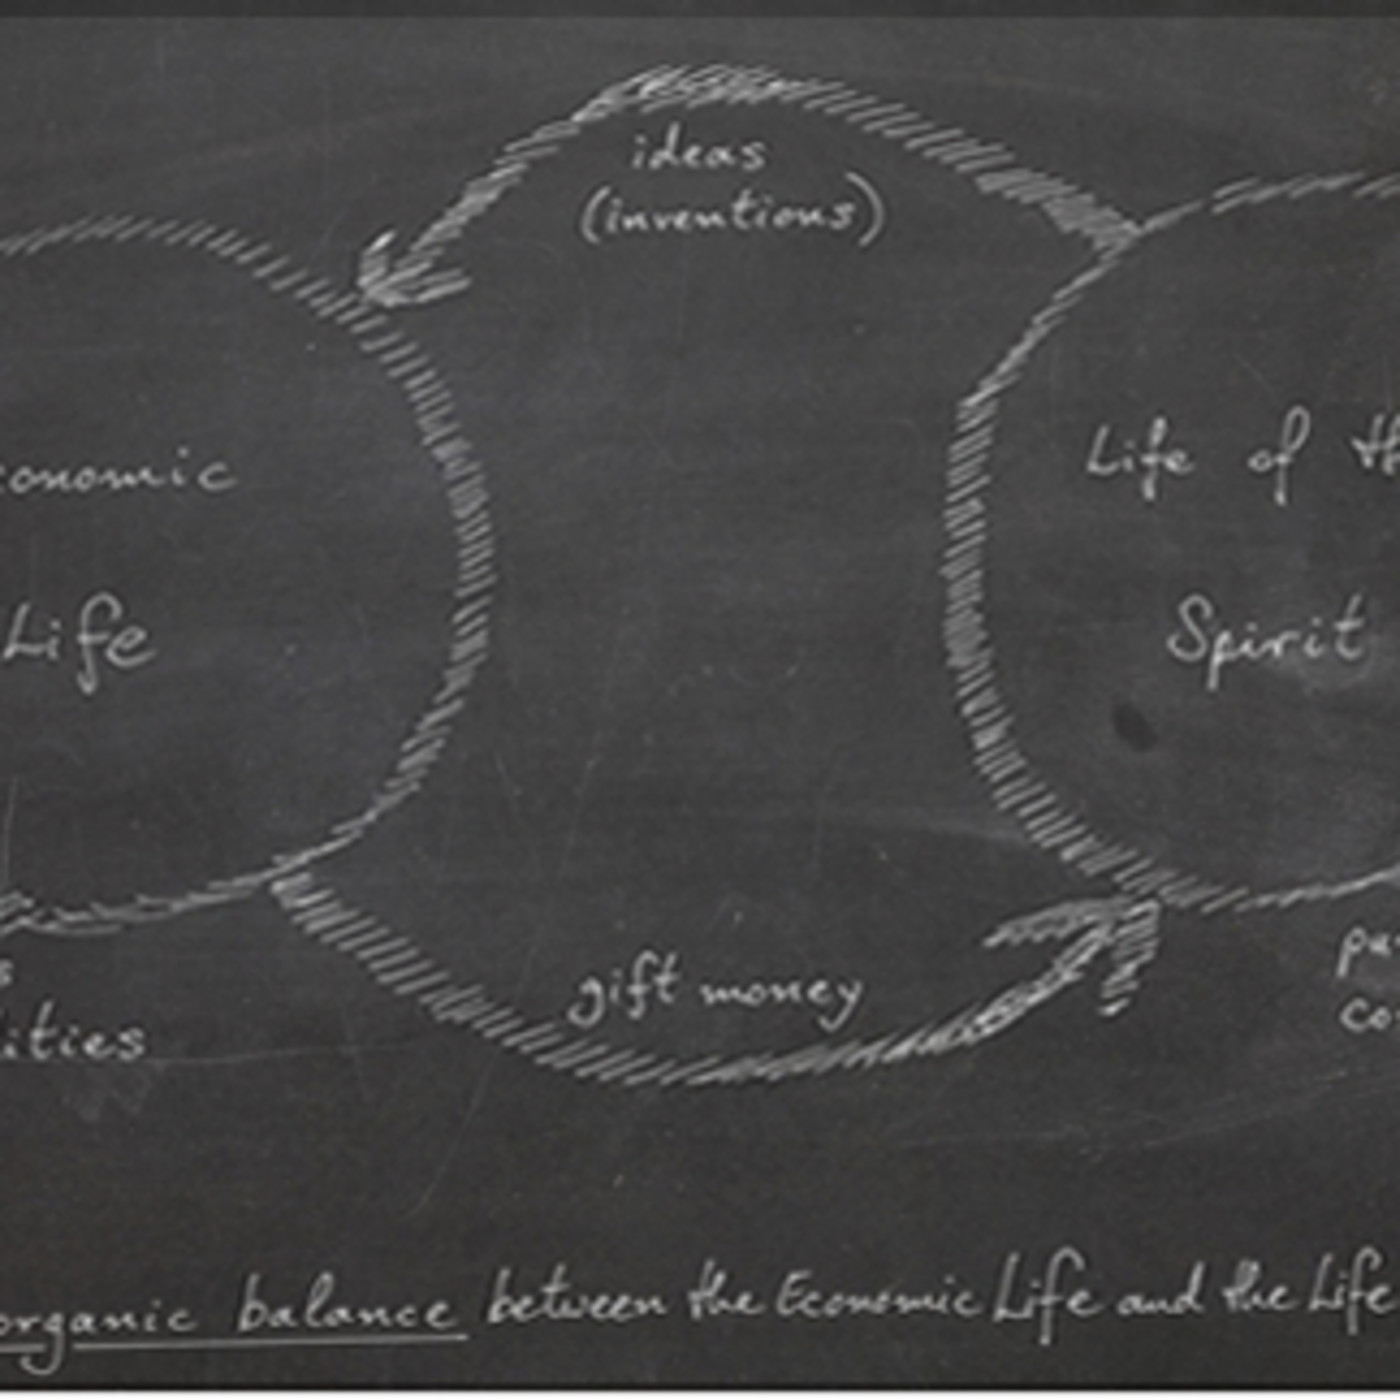 ideas
(inventions)
conomic
Life
Life of th
Spirit
gift money
s
ities
pu
co
organic balance between the Economic Life and the Life